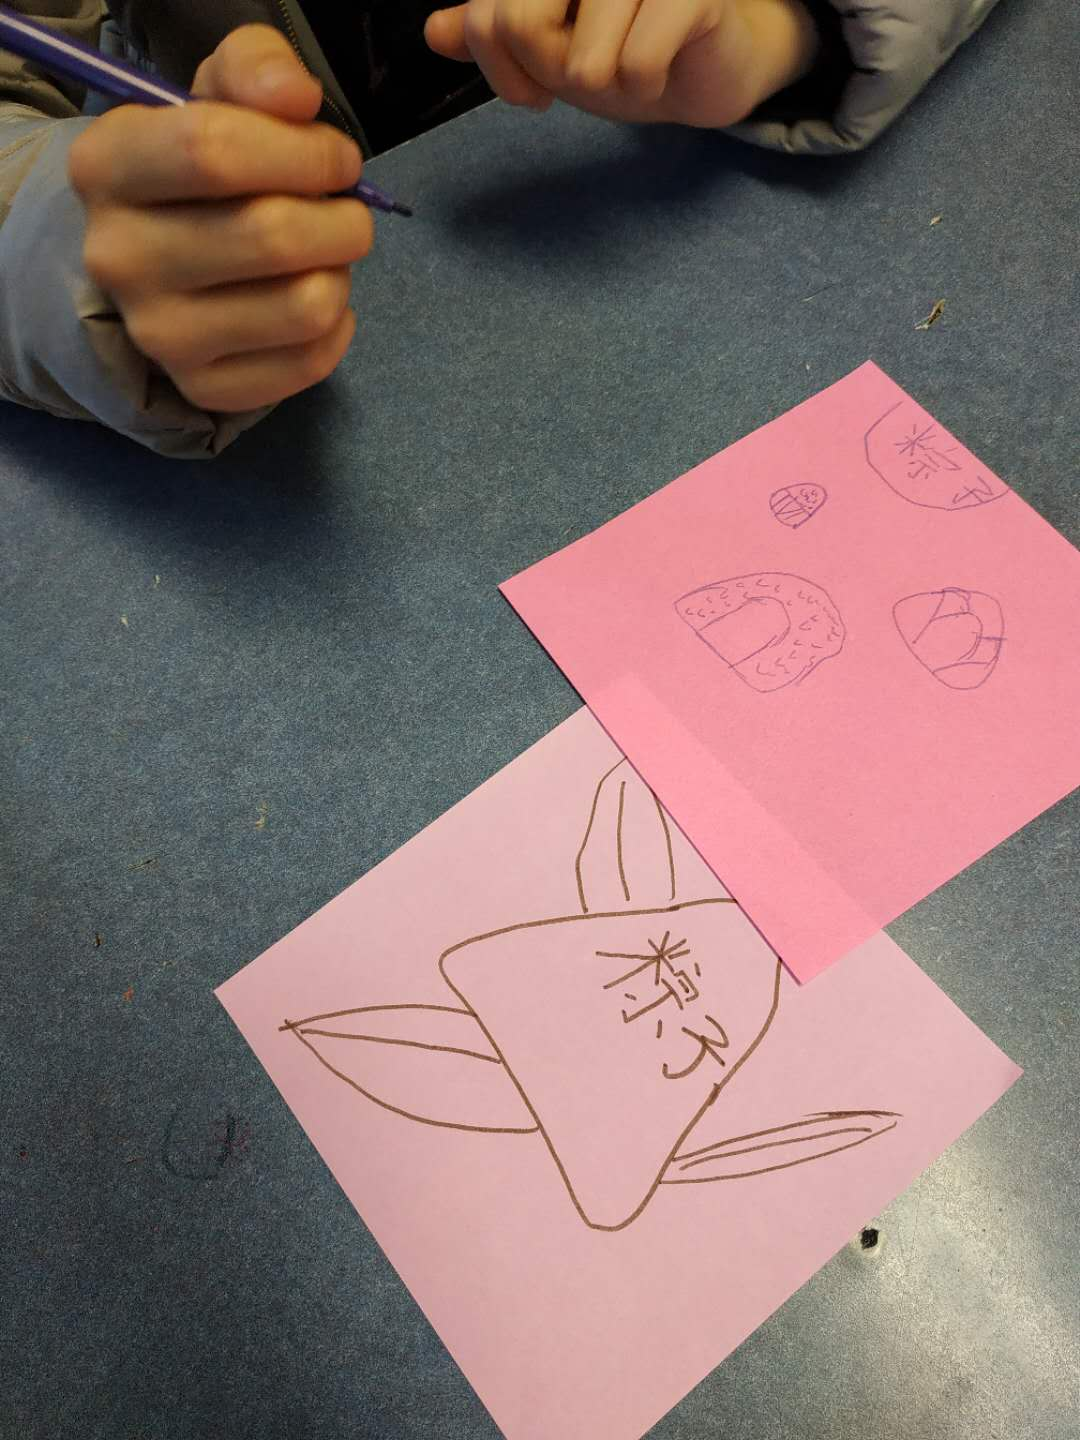 粽子
粽子